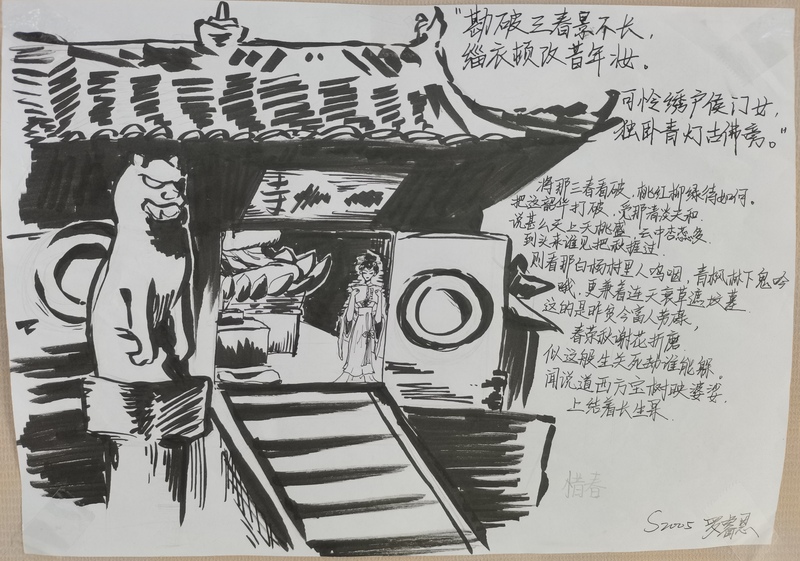 "勘破三春景不长,
缁衣顿改昔年妆。
可怜绣户侯门女,
独卧青灯古佛旁。"
将那三春看破,桃红柳绿待如何。
把这韶华打破,觅那清淡天和.
说甚么天上夭桃盛,云中杏蕊多
到头来谁见把秋捱过
则看那白杨村里人呜咽,青枫林下鬼吟
哦,更兼着连天衰草遮坟墓
这的是昨贫今富人劳碌,
春荣秋谢花折磨
似这般生关死劫谁能躲。
闻说道西方宝树映婆娑
上结着长生果
寺
惜春
S2005 罗睿恩